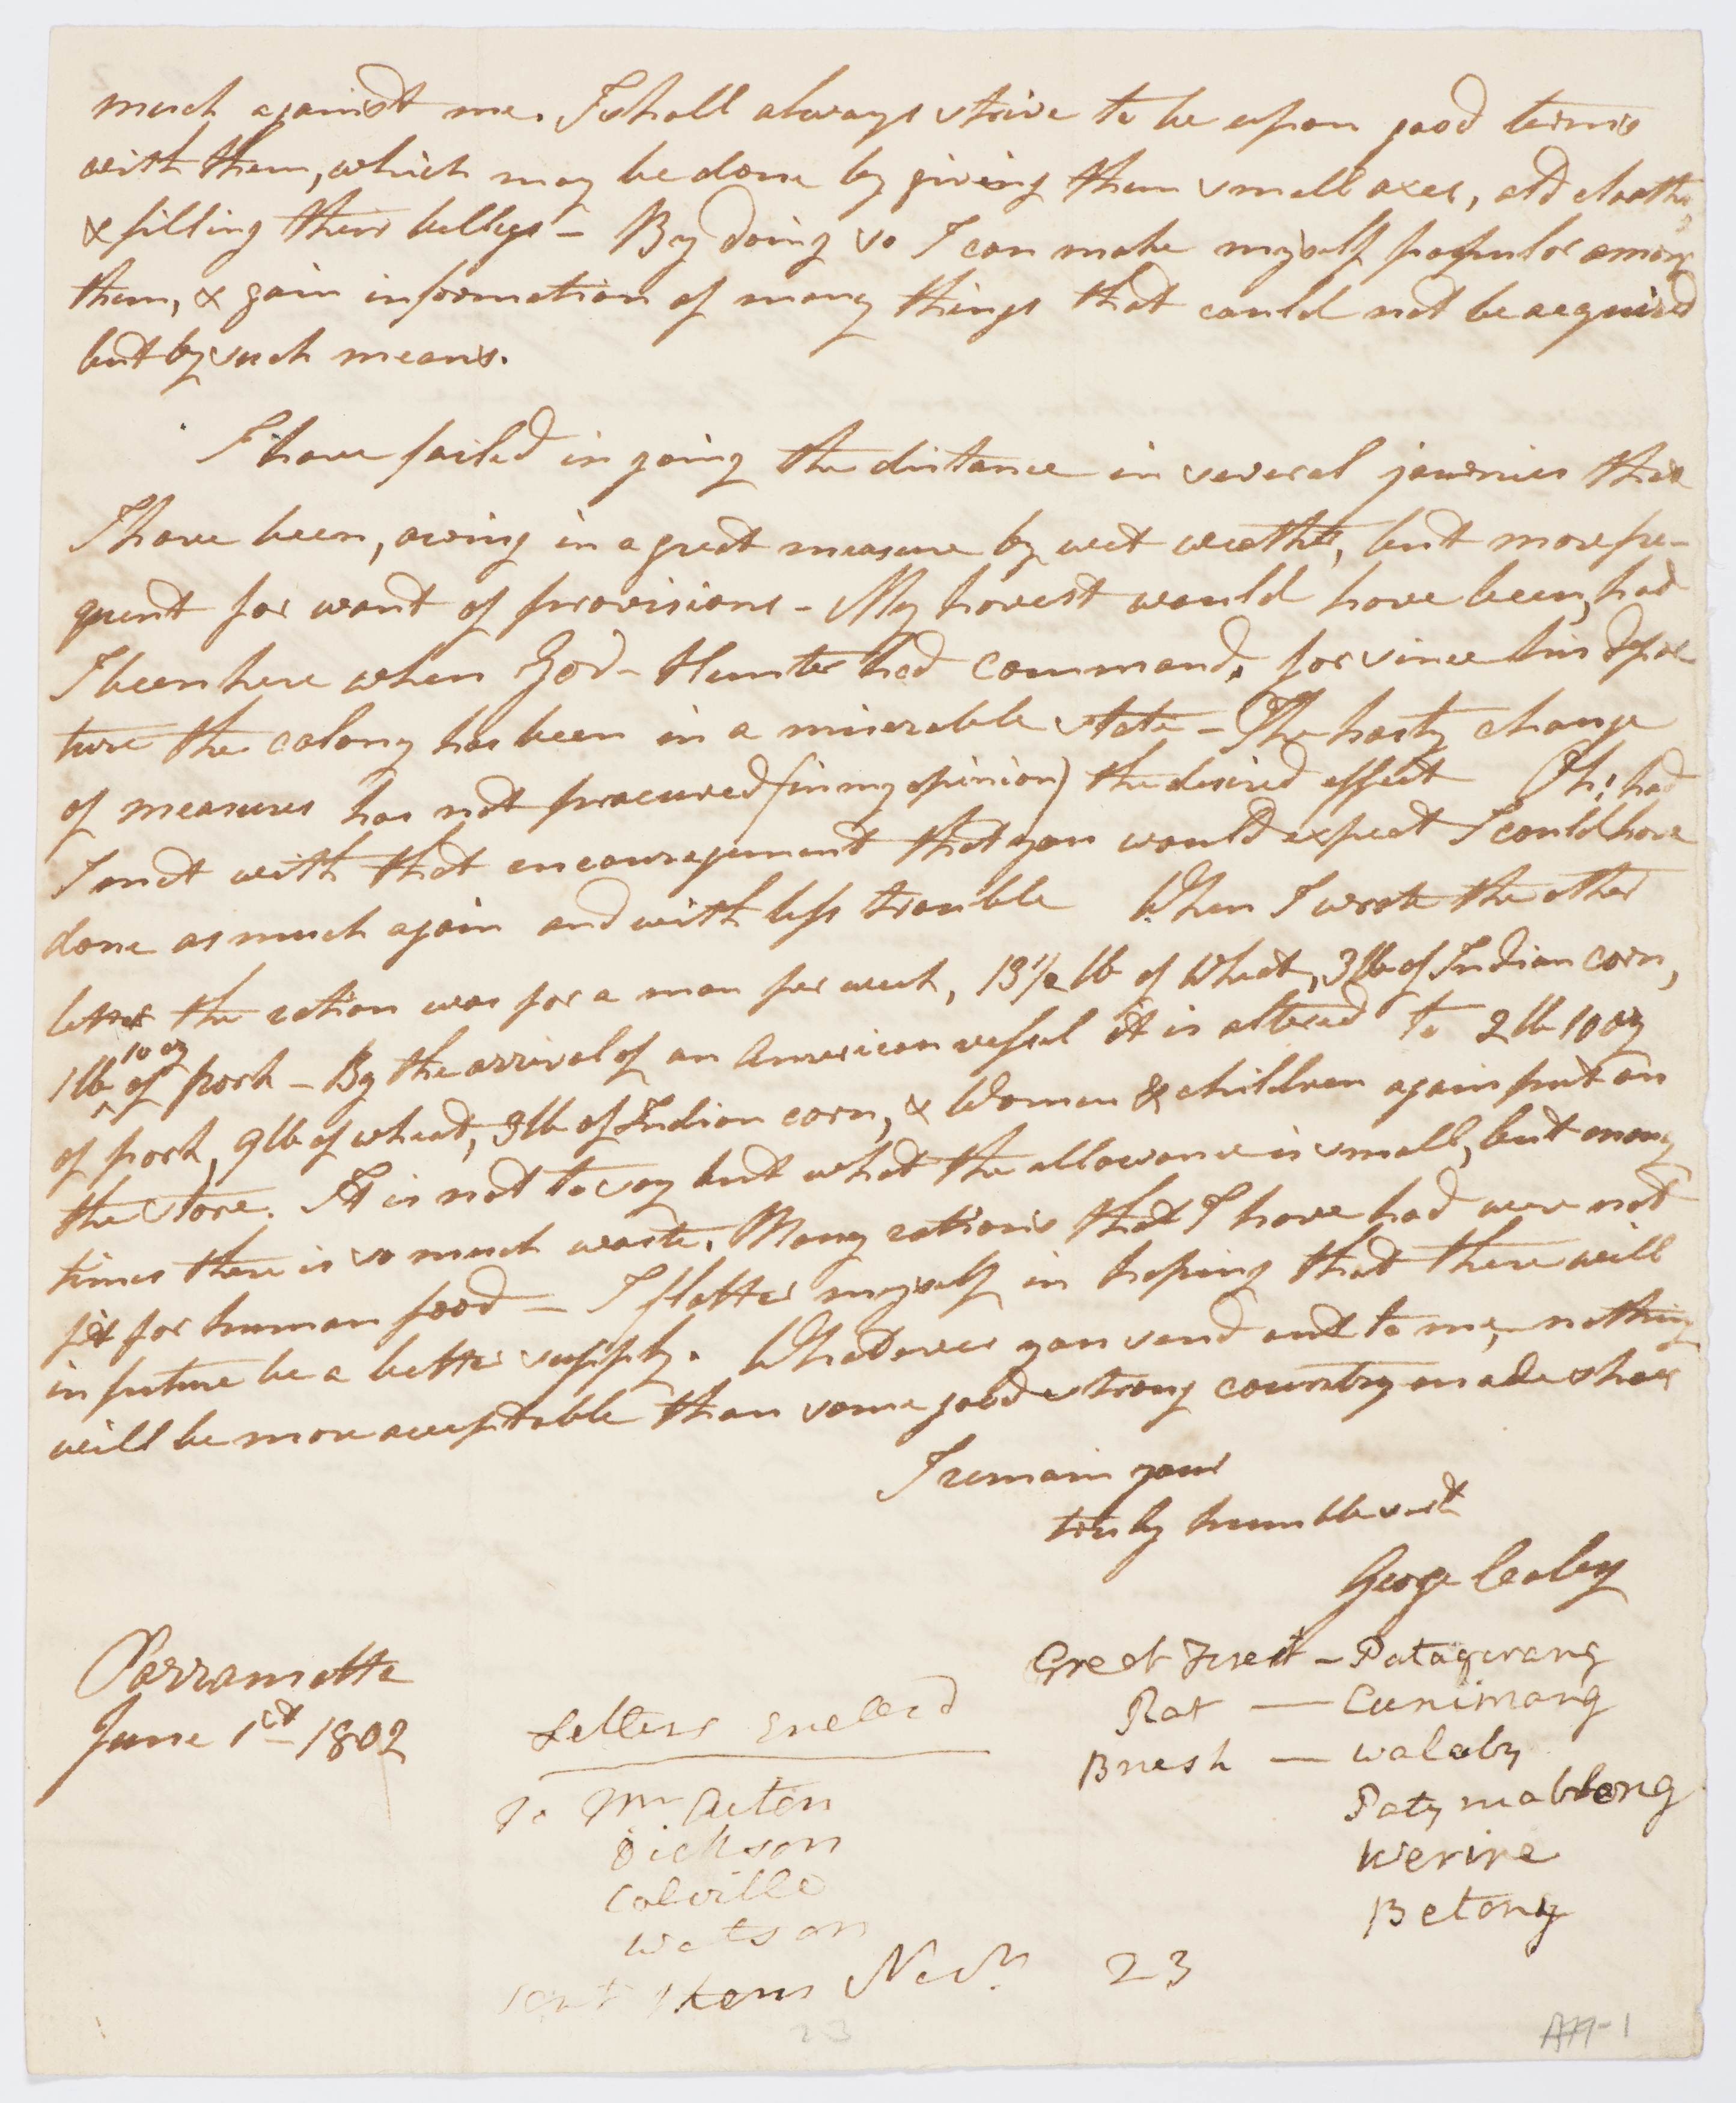 much against me. I shall always strive to be upon good terms
with them, which may be done by giving them small axes, old cloaths,
& filling their bellys - By doing so I can make myself popular among
them, & gain information of many things that could not be acquired
but by such means.
I have failed in going the distance in several journies that
I have been, owing in a great measure by wet weather, but more fre-
quent for want of provisions - My harvest would have been, had
I been here when Gov- Hunter had command, for since his depar
ture the colony has been in a miserable state - The hasty change
of measures has not procured (in my opinion) the desired effect Oh! had
I met with that encouragement that you would expect I could have
done as much again and with less trouble When I wrote the other
letter the ration was for a man per week, 13 1/2 lb of Wheat, 3 lb of Indian corn,
1 lb 10 oz of pork - By the arrival of an American vessel it is altered to 2 lb 10 oz
of pork, 9 lb of wheat, 3 lb of Indian corn, & Women & children again put on
the store. It is not to say but what the allowance is small, but many
times there is so much waste. Many rations that I have had were not
fit for human food - I flatter myself in hoping that there will
in future be a better supply. Whatever you send out to me, nothing
will be more acceptable than some good strong country made shoes
I remain your
truly humble servt
George Caley
Parramatta
June 1st 1802
Letters Enclosd
To Mr Aiton
Dickson
Colville
Watson
sent them Novr. 23
Great Forest - Patagorang
Rat - Cunimang
Brush - Walaby
Paty mablong
Werine
Betong
23
AM-1